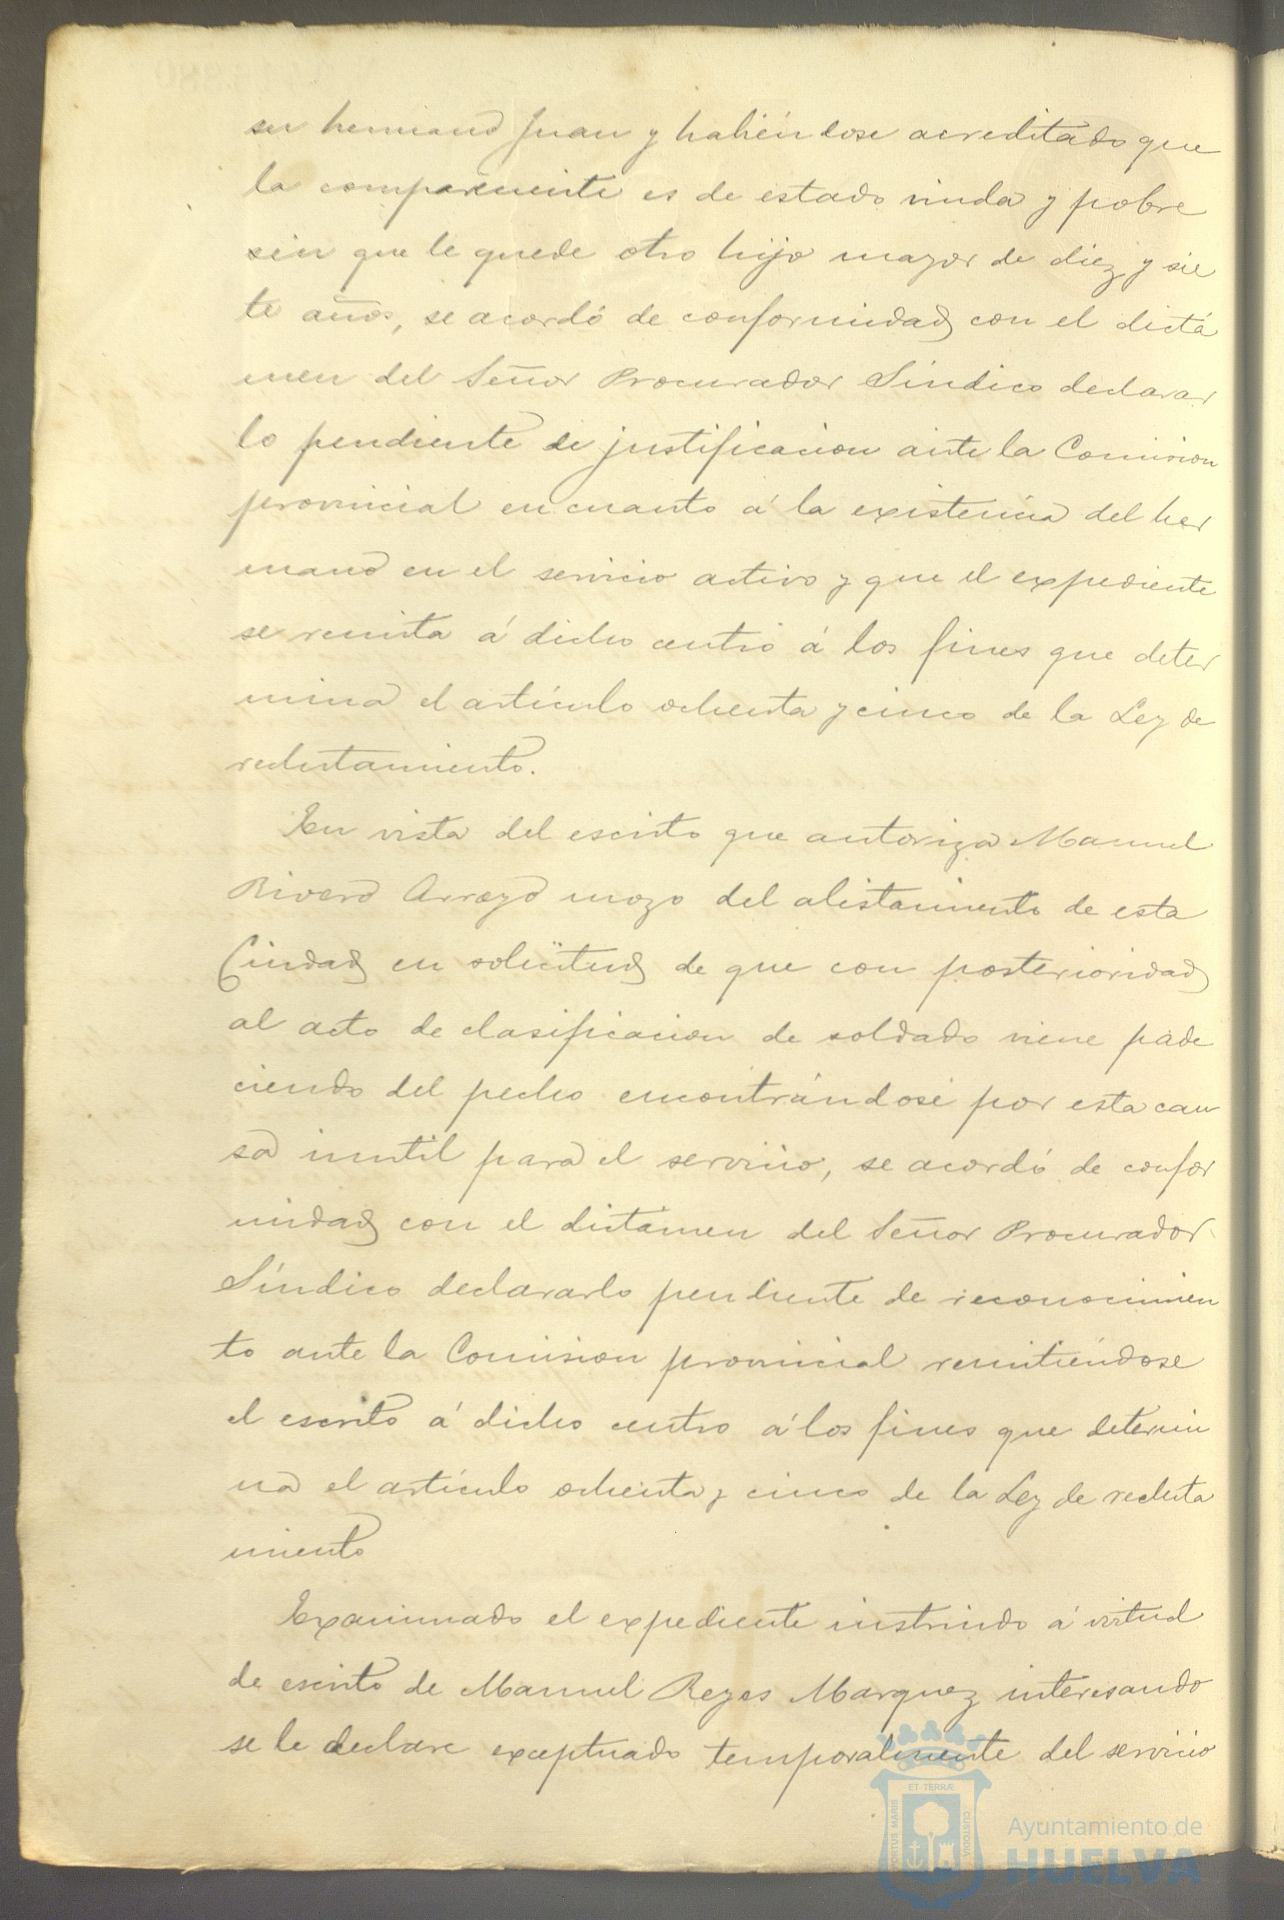 su hermano Juan y habiéndose acreditado que
la compareciente es de estado viuda y pobre
sin que le quede otro hijo mayor de diez y sie
te años, se acordó de conformidad con el dictá
men del Señor Procurador Síndico declarar
lo pendiente de justificacion ante la Comision
provincial en cuanto á la existencia del her
mano en el servicio activo y que el expediente
se remita á dicho centro á los fines que deter
mina el artículo ochenta y cinco de la Ley de
reclutamiento.
En vista del escrito que autoriza Manuel
Rivero Arroyo mozo del alistamiento de esta
Ciudad en solicitud de que con posterioridad
al acto de clasificacion de soldado viene pade
ciendo del pecho encontrándose por esta cau
sa inutil para el servicio, se acordó de confor
midad con el dictámen del Señor Procurador
Síndico declararlo pendiente de reconocimien
to ante la Comision provincial remitiéndose
el escrito á dicho centro á los fines que determi
na el artículo ochenta y cinco de la Ley de recluta
miento
Examinado el expediente instruido á virtud
de escrito de Manuel Reyes Marquez interesando
se le declare exceptuado temporalmente del servicio
ET TERRÆ
PORTUS MARIS
CUSTODIA
Ayuntamiento de
HUELVA